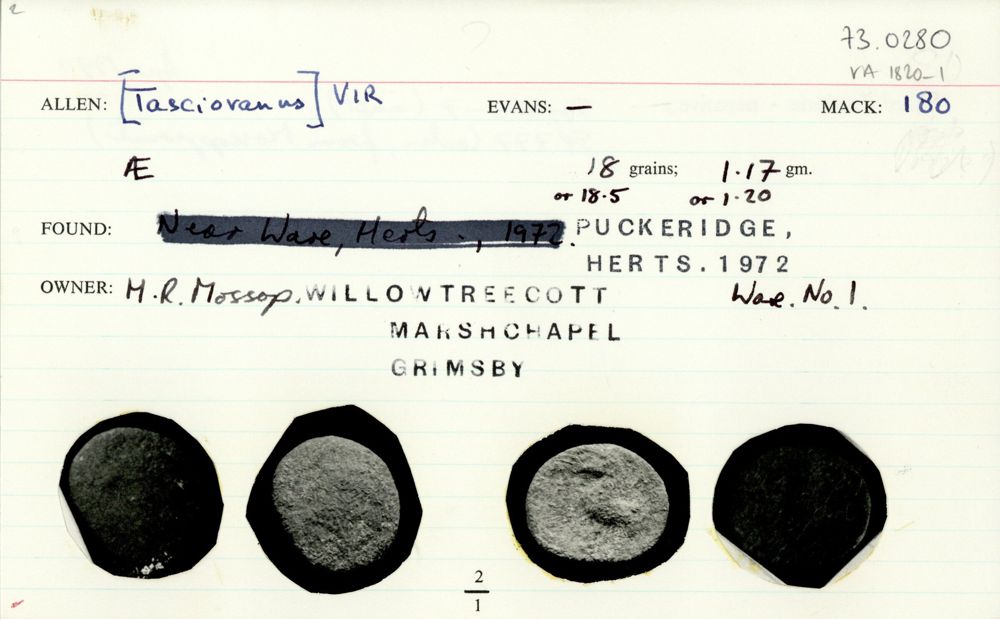 2
73.0280
VA 1820-1
ALLEN: [Tasciovanus] VIR EVANS: — MACK: 180
Æ 18 grains; 1.17 gm.
or 18.5 or 1.20
FOUND: Near Ware, Herts., 1972. PUCKERIDGE,
HERTS. 1972
OWNER: M.R. Mossop. WILLOWTREECOTT Ware. No. 1.
MARSHCHAPEL
GRIMSBY
2
1